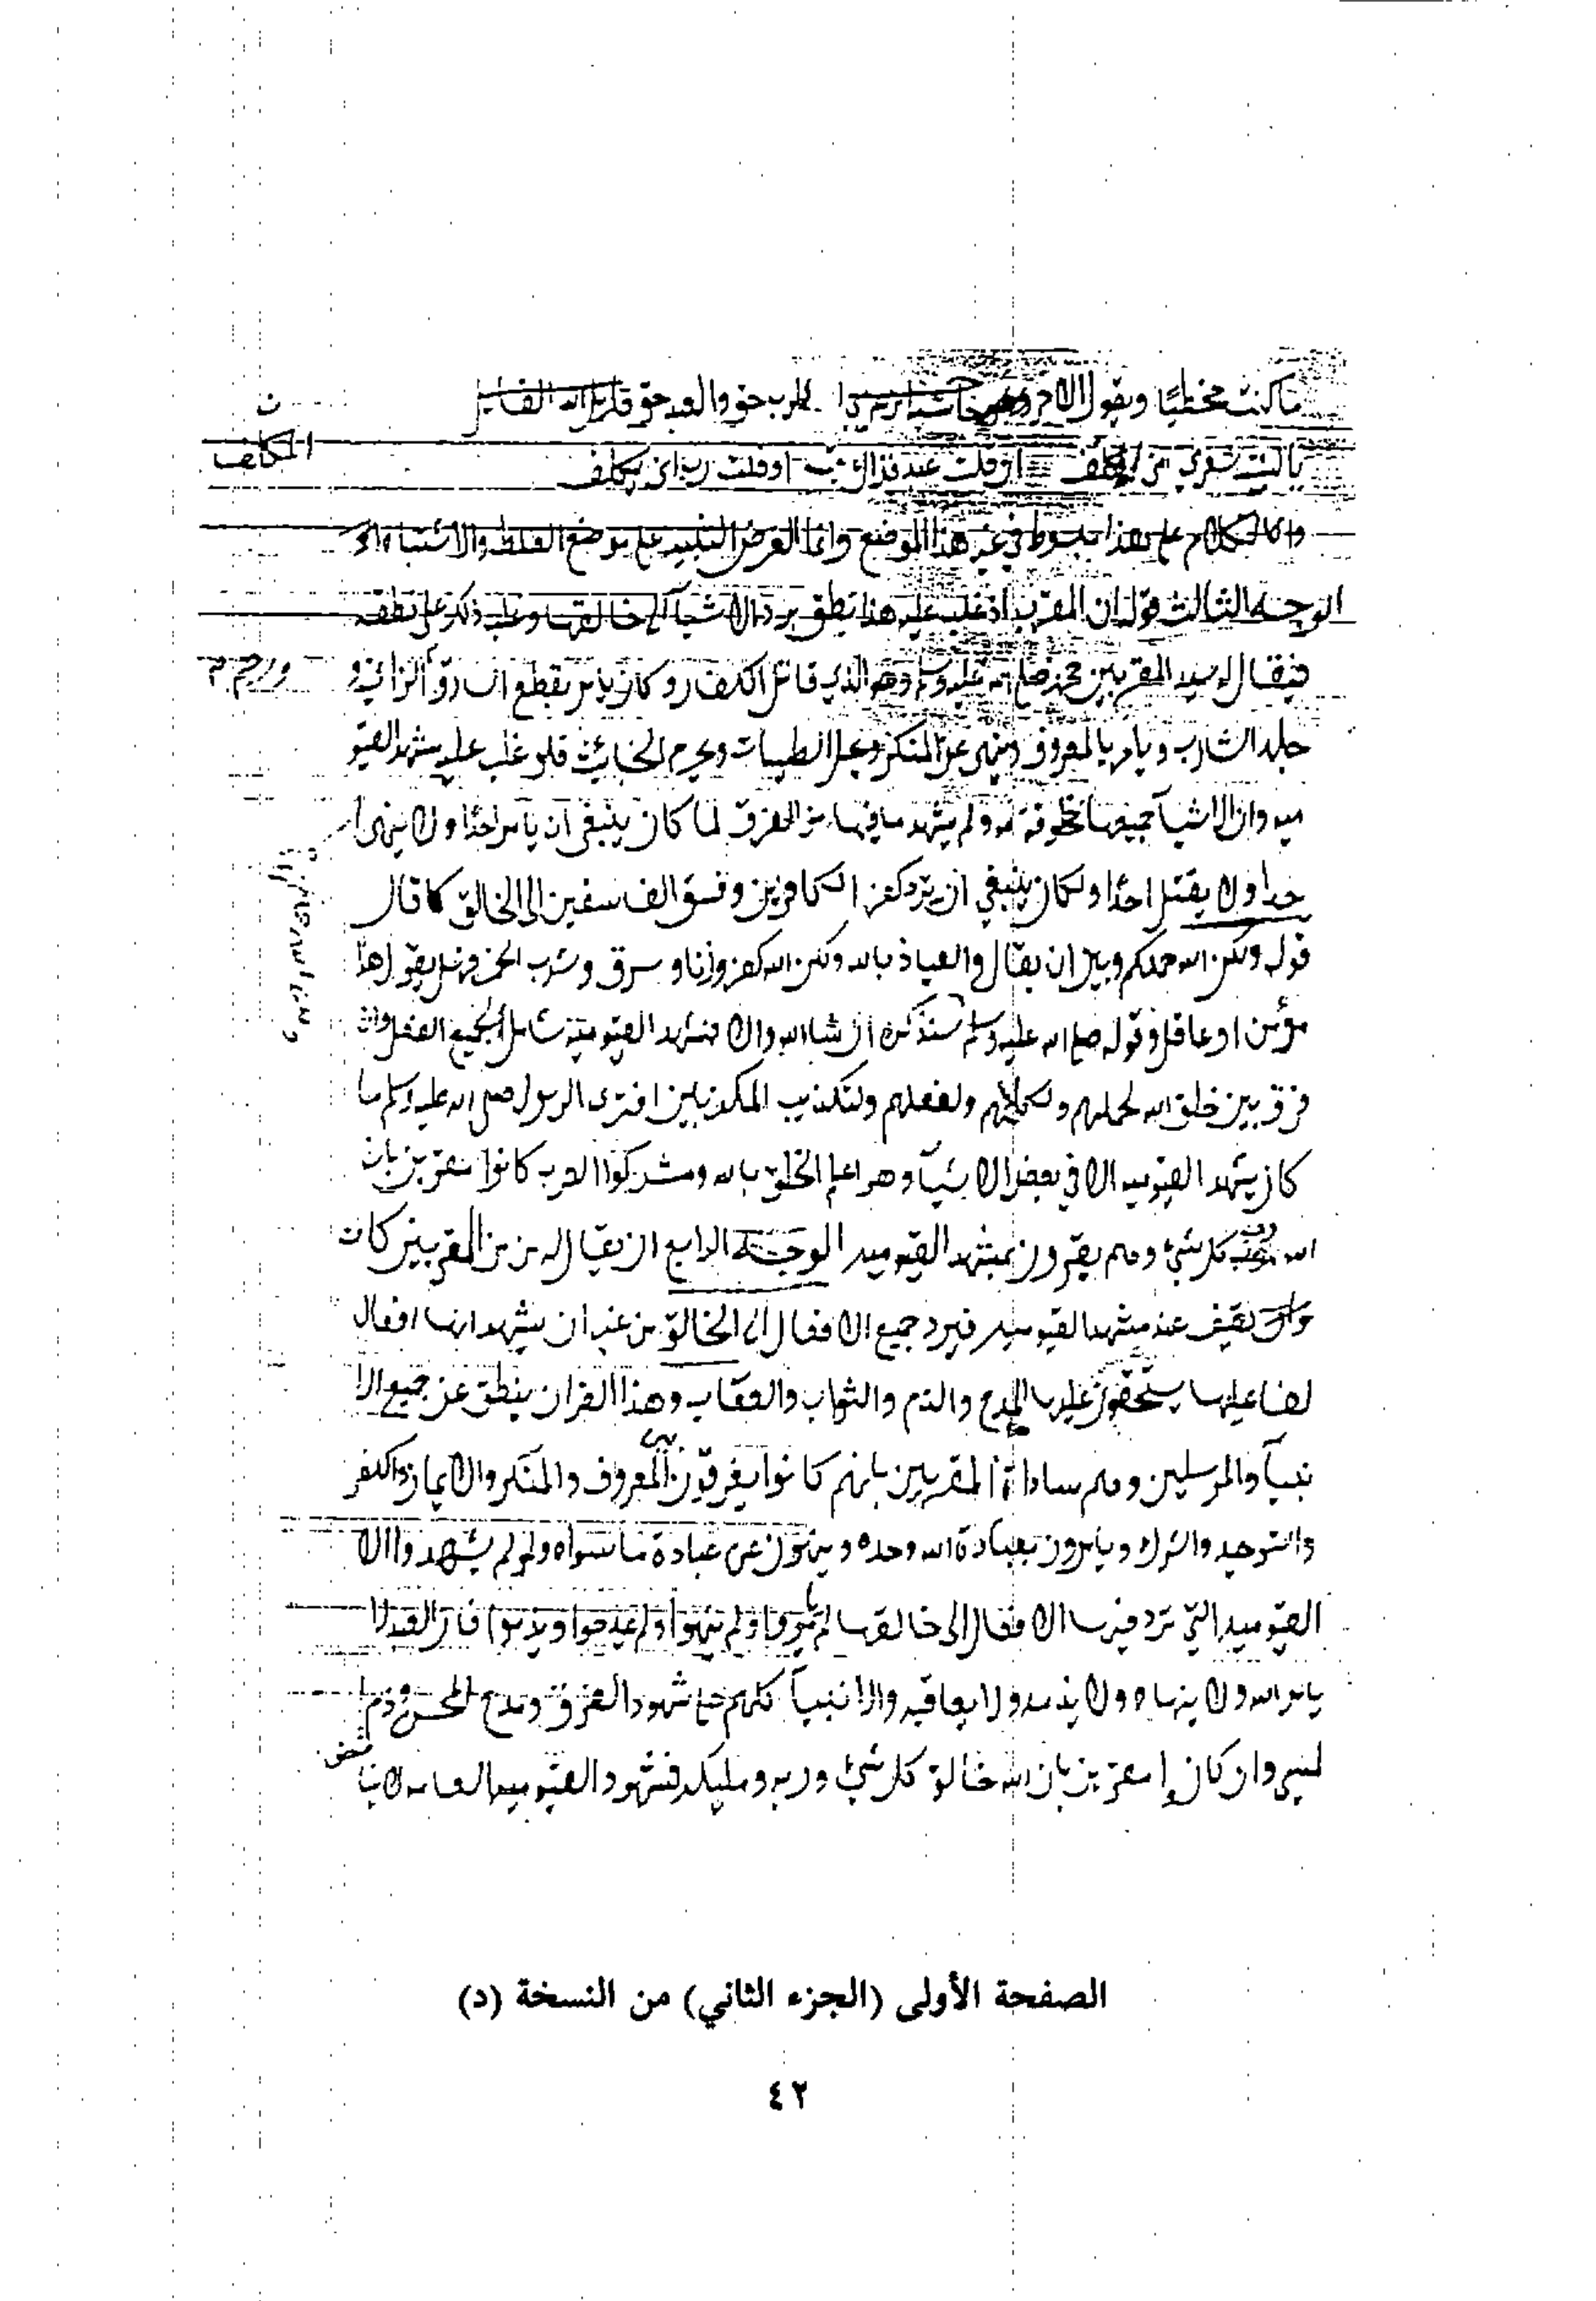 ما كنت مخطيًا ويقول الآخر الرب حق والعبد حق قاتل الله القايل
يا ليت شعري من المكلف ان قلت عبد فذاك رب او قلت رب انى يكلف
المكلف
والكلام على هذا مبسوط في غير هذا الموضع وانما الغرض التنبيه على موضع الغلط والاشتباه
الوجه الثالث قوله ان المقرب اذ غلب عليه هذا نطق برد الاشيآ الى خالقها وغلب ذكر على نطقه
فيقال له سيد المقربين محمد صلى الله عليه وسلم وهو الذي قاتل الكفار وكان يامر بقطع السارق الزاني و
ورجم
جلد الشارب ويامر بالمعروف وينهى عن المنكر ويحل الطيبات ويحرم الخبائث فلو غلب عليه مشهد القيو
ميه وان الاشيآ جميعها مخلوقة له ولم يشهد ما فيها من الفرق لما كان ينبغي ان يامر احدًا ولا ينهى ا
حدا ولا يقتل احدًا ولكان ينبغي ان يرد كفر الكافرين وفسق الفاسقين الى الخالق كما قال
قوله ولكن الله حملكم وبين ان يقال والعياذ بالله ولكن الله كفر وزنا وسرق وشرب الخمر فهل يقول هذا
مؤمن او عاقل وقوله صلى الله عليه وسلم سنذكره ان شا الله والا فشهد القيومية شامل لجميع
فرق بين خلق الله لحملهم ولكلامهم ولفعلهم ولتكذيب المكذبين افترى الرسول صلى الله عليه وسلم ما
كان يشهد القيوميه الا في بعض الاشيآ وهو اعلم الخلق بالله ومشركوا العرب كانوا مقرين بان
الله رب كل شيء وهم يقرون بمشهد القيوميه الوجه الرابع ان يقال له من من المقربين كان
يقف عند مشهد القيوميه فيرد جميع الافعال الى الخالق من غير ان يشهد انها افعال
لفاعليها يستحقون عليها المدح والذم والثواب والعقاب وهذا القران ينطق عن جميع الا
نبيآ والمرسلين وهم سادات المقربين بانهم كانوا يفرقون بين المعروف والمنكر والايمان والكفر
والتوحيد والشرك ويامرون بعبادة الله وحده وينهون عن عبادة ما سواه ولو لم يشهدوا الا
القيوميه التي ترد فيها الافعال الى خالقها لم يامروا ولم ينهوا ولم يمدحوا ويذموا فان العبد لا
يامر الله ولا ينهاه ولا يذمه ولا يعاقبه والانبيآ كلهم على شهود الفرق ومدح المحسن وذم ا
لمسي وان كان مقرين بان الله خالق كل شيء وربه ومليكه فشهود القيوميه العامه لا
الصفحة الأولى (الجزء الثاني) من النسخة (د)
٤٢